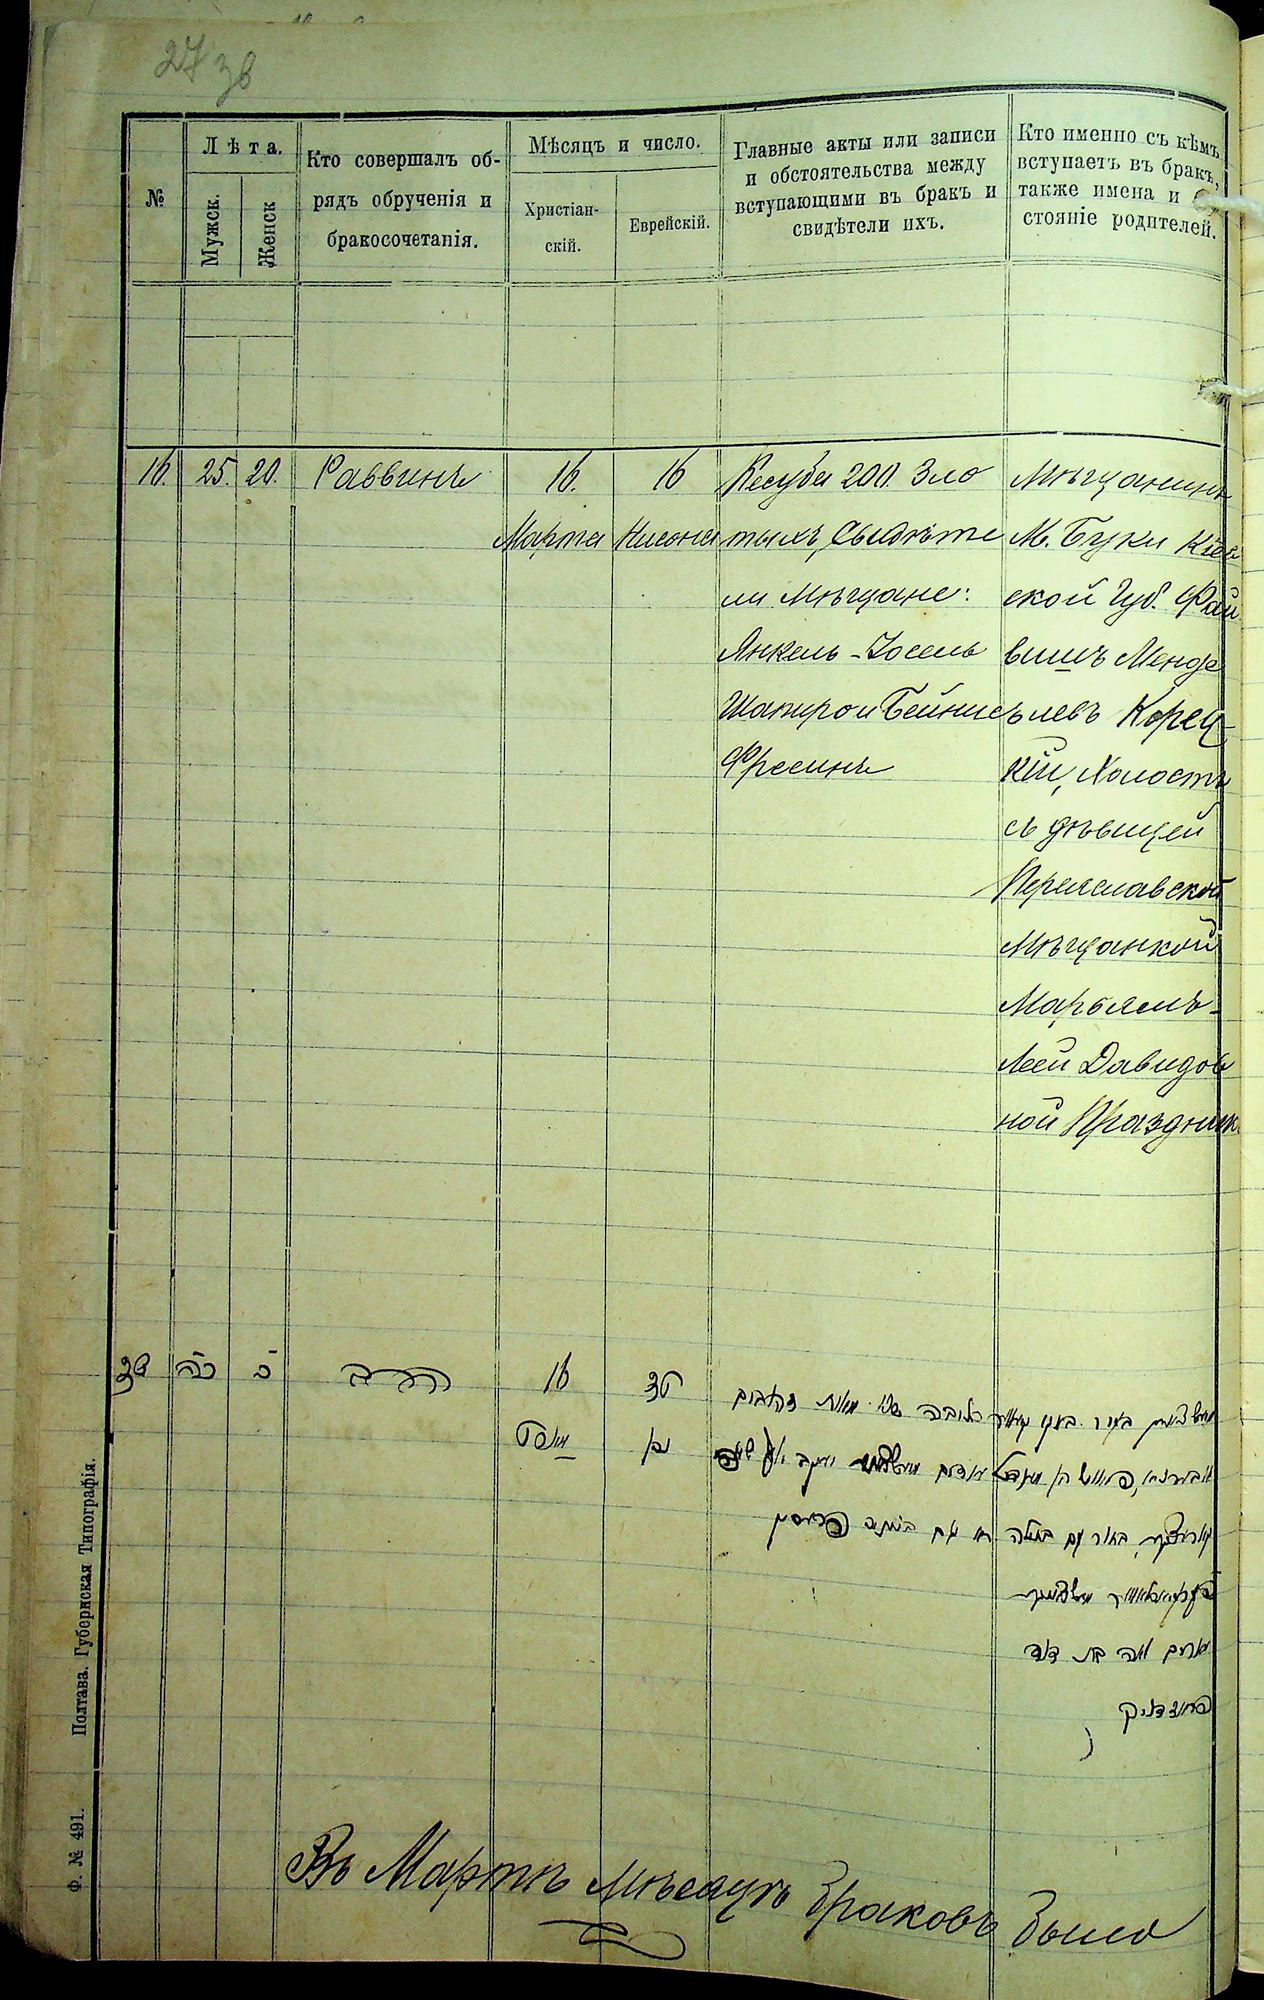 27 38
№
Лѣта.
Мужск.
Женск
Кто совершалъ об-
рядъ обрученія и
бракосочетанія.
Мѣсяцъ и число.
Христіан-
скій.
Еврейскій.
Главные акты или записи
и обстоятельства между
вступающими въ бракъ и
свидѣтели ихъ.
Кто именно съ кѣмъ
вступаетъ въ бракъ,
также имена и
стояніе родителей.
16.
25.
20.
Раввинъ
16.
Марта
16
Нисона
Кесуба 200. Зло
тыхъ, Свидѣте
ли Мѣщане:
Янкель-Іосель
Шапиро и Бейнисъ
Фресинъ
Мѣщанинъ
М. Буки Кіев
ской Губ. Фай
вишъ Менде
левъ Корец
кій, Холостъ
съ дѣвицей
Переяславской
Мѣщанкой
Марьямъ-
Леей Давидов
ной Праздник
כה
כ
הרב
16
מארט
טז
ניסן
כתובה שני מאות זהובים
מרים לאה בת דוד
פראזדניק
Въ Мартѣ мѣсяцѣ браковъ было
Полтава. Губернская Типографія.
Ф. № 491.